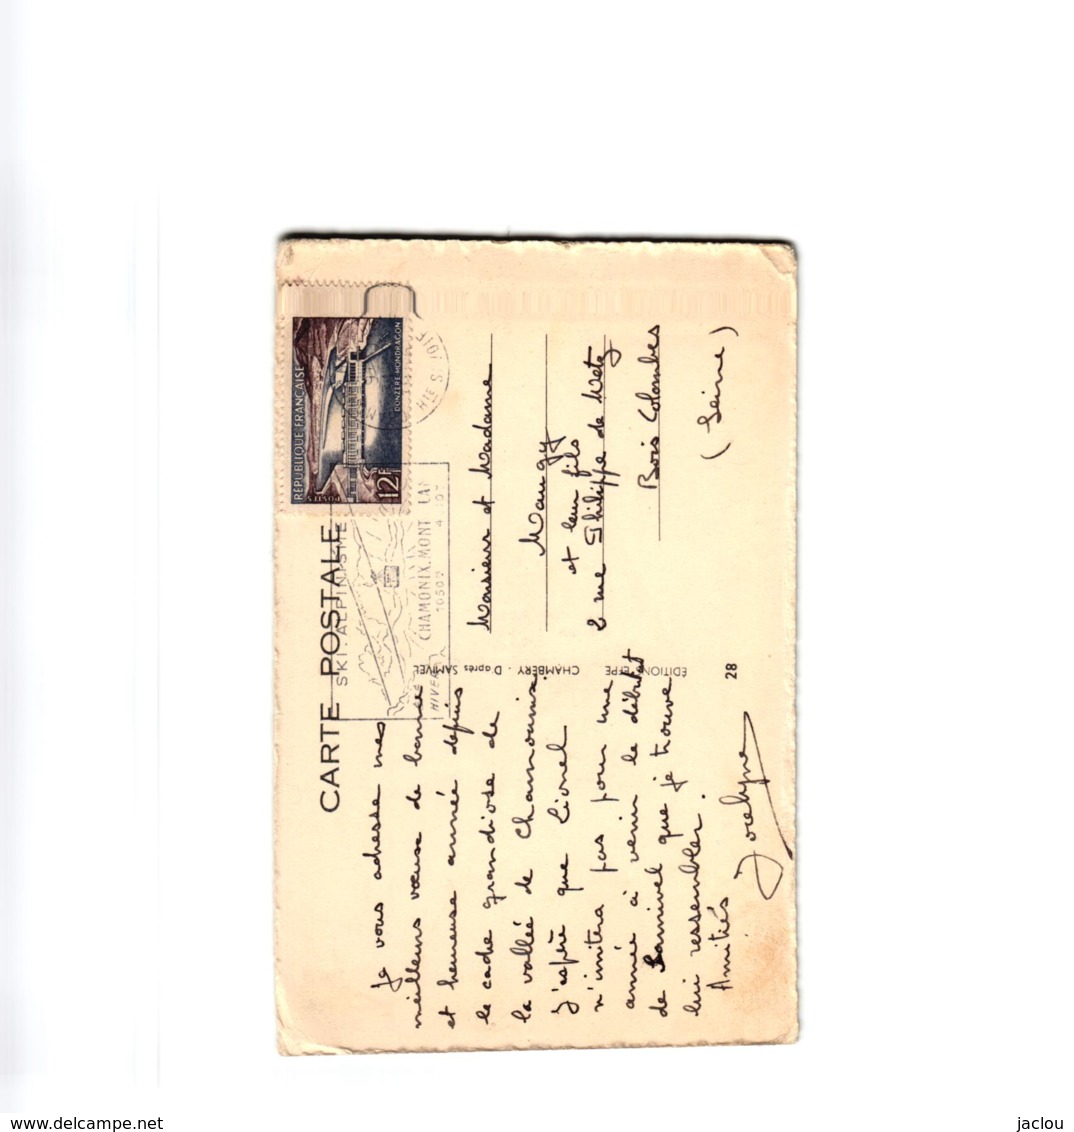 CARTE POSTALE
Je vous adresse mes
meilleurs vœux de bonne
et heureuse année depuis
le cadre grandiose de
la vallée de Chamonix.
J'espère que Lionel
n'imitera pas pour une
année à venir le débutant
de Samivel que je trouve
lui ressembler.
Amitiés
Jocelyne
ÉDITIONS EFPE CHAMBÉRY - D'après SAMIVEL
28
SKI. ALPINISME
HIVER
CHAMONIX. MONT
REPUBLIQUE FRANÇAISE
POSTES
12F
DONZÈRE-MONDRAGON
HTE SAVOIE
Monsieur et Madame
Maugy
et leur fils
2 rue Philippe de Metz
Bois Colombes
(Seine)
www.delcampe.net
jaclou